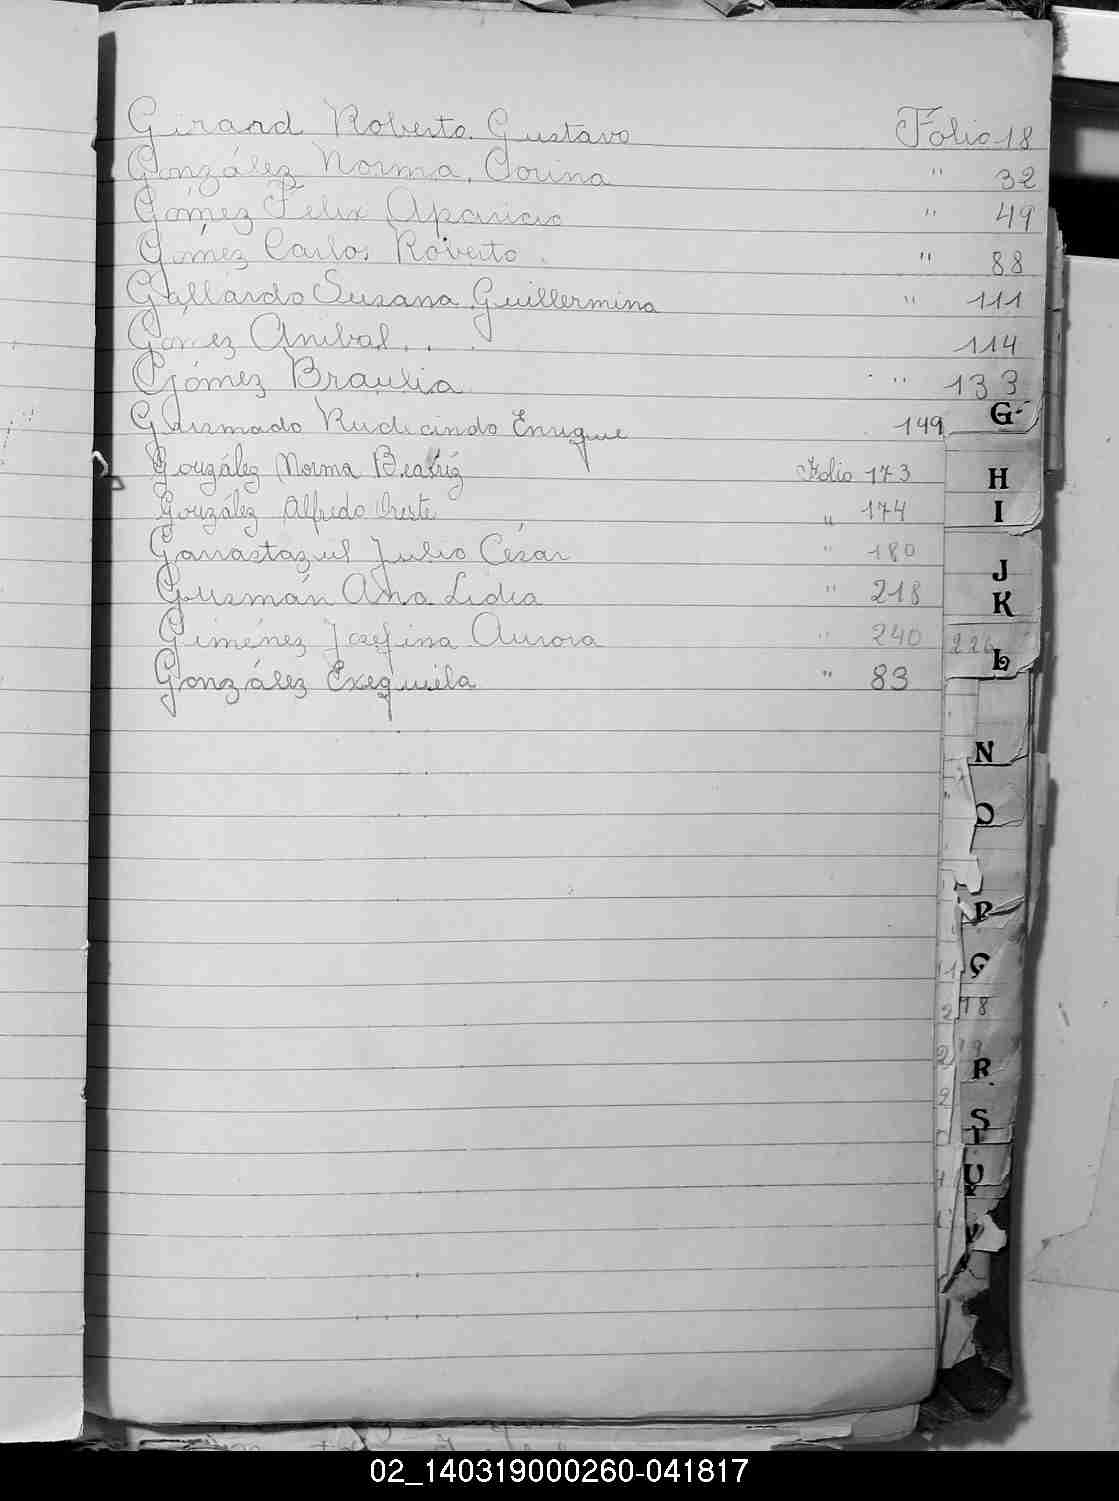 Girard Roberto Gustavo Folio 18
González Norma Corina " 32
Gómez Felix Aparicio " 49
Gómez Carlos Roberto " 88
Gallardo Susana Guillermina " 111
Gómez Anibal 114
Gómez Braulia " 133
G-
Guzmado Rudecindo Enrique 149
González Norma Beatríz Folio 173
H
González Alfredo Oreste " 174
I
Garrastazul Julio César " 180
J
Gusmán Ana Lidia " 218
K
Giménez Josefina Aurora " 240
226
L
González Exequiela " 83
N
O
P
Q
18
19
R
S
U
V
02_140319000260-041817